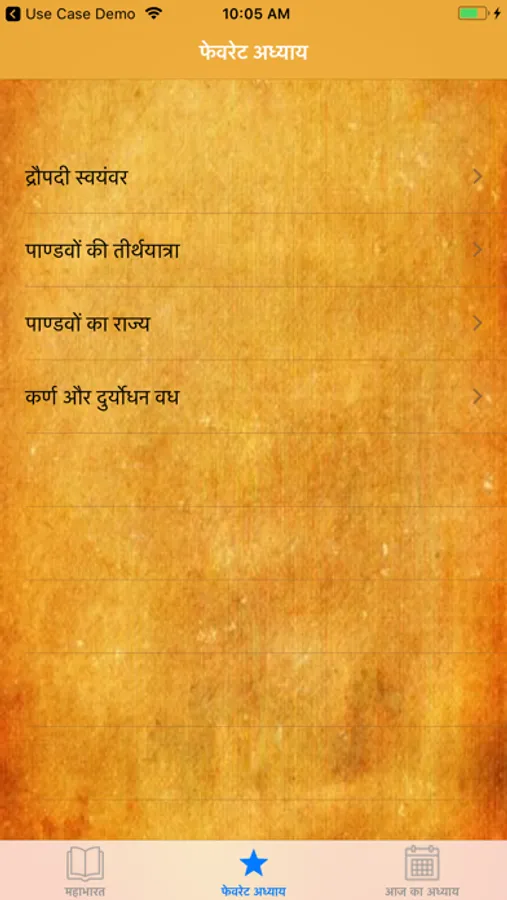 Use Case Demo
10:05 AM
फेवरेट अध्याय
द्रौपदी स्वयंवर
पाण्डवों की तीर्थयात्रा
पाण्डवों का राज्य
कर्ण और दुर्योधन वध
महाभारत
फेवरेट अध्याय
आज का अध्याय